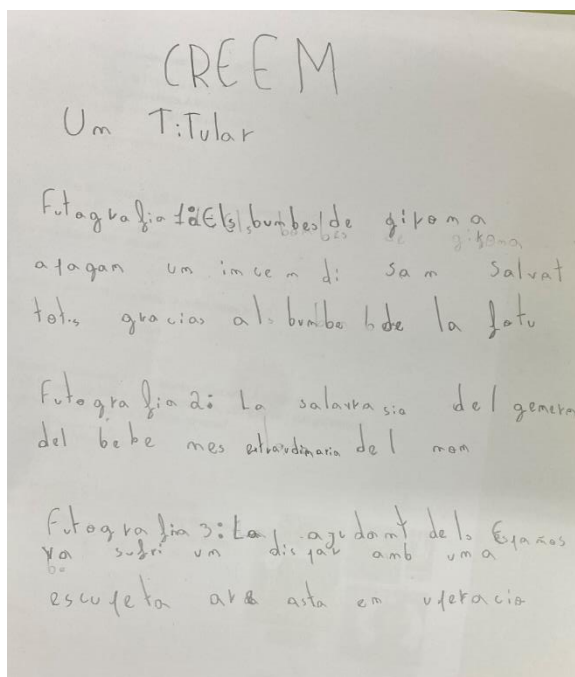 CREEM
Um TiTular
Futagrafia 1: Els bumbes de giroma
apagam um imcemdi sam salvat
tots gracias als bumbe de la fotu
Futografia 2: La salavrasio del gemera
del bebe mes extraurdimaria del mom
Futografia 3: La agudamt dels
va sufri um dispar amb uma
escupeta ara asta em uperacio